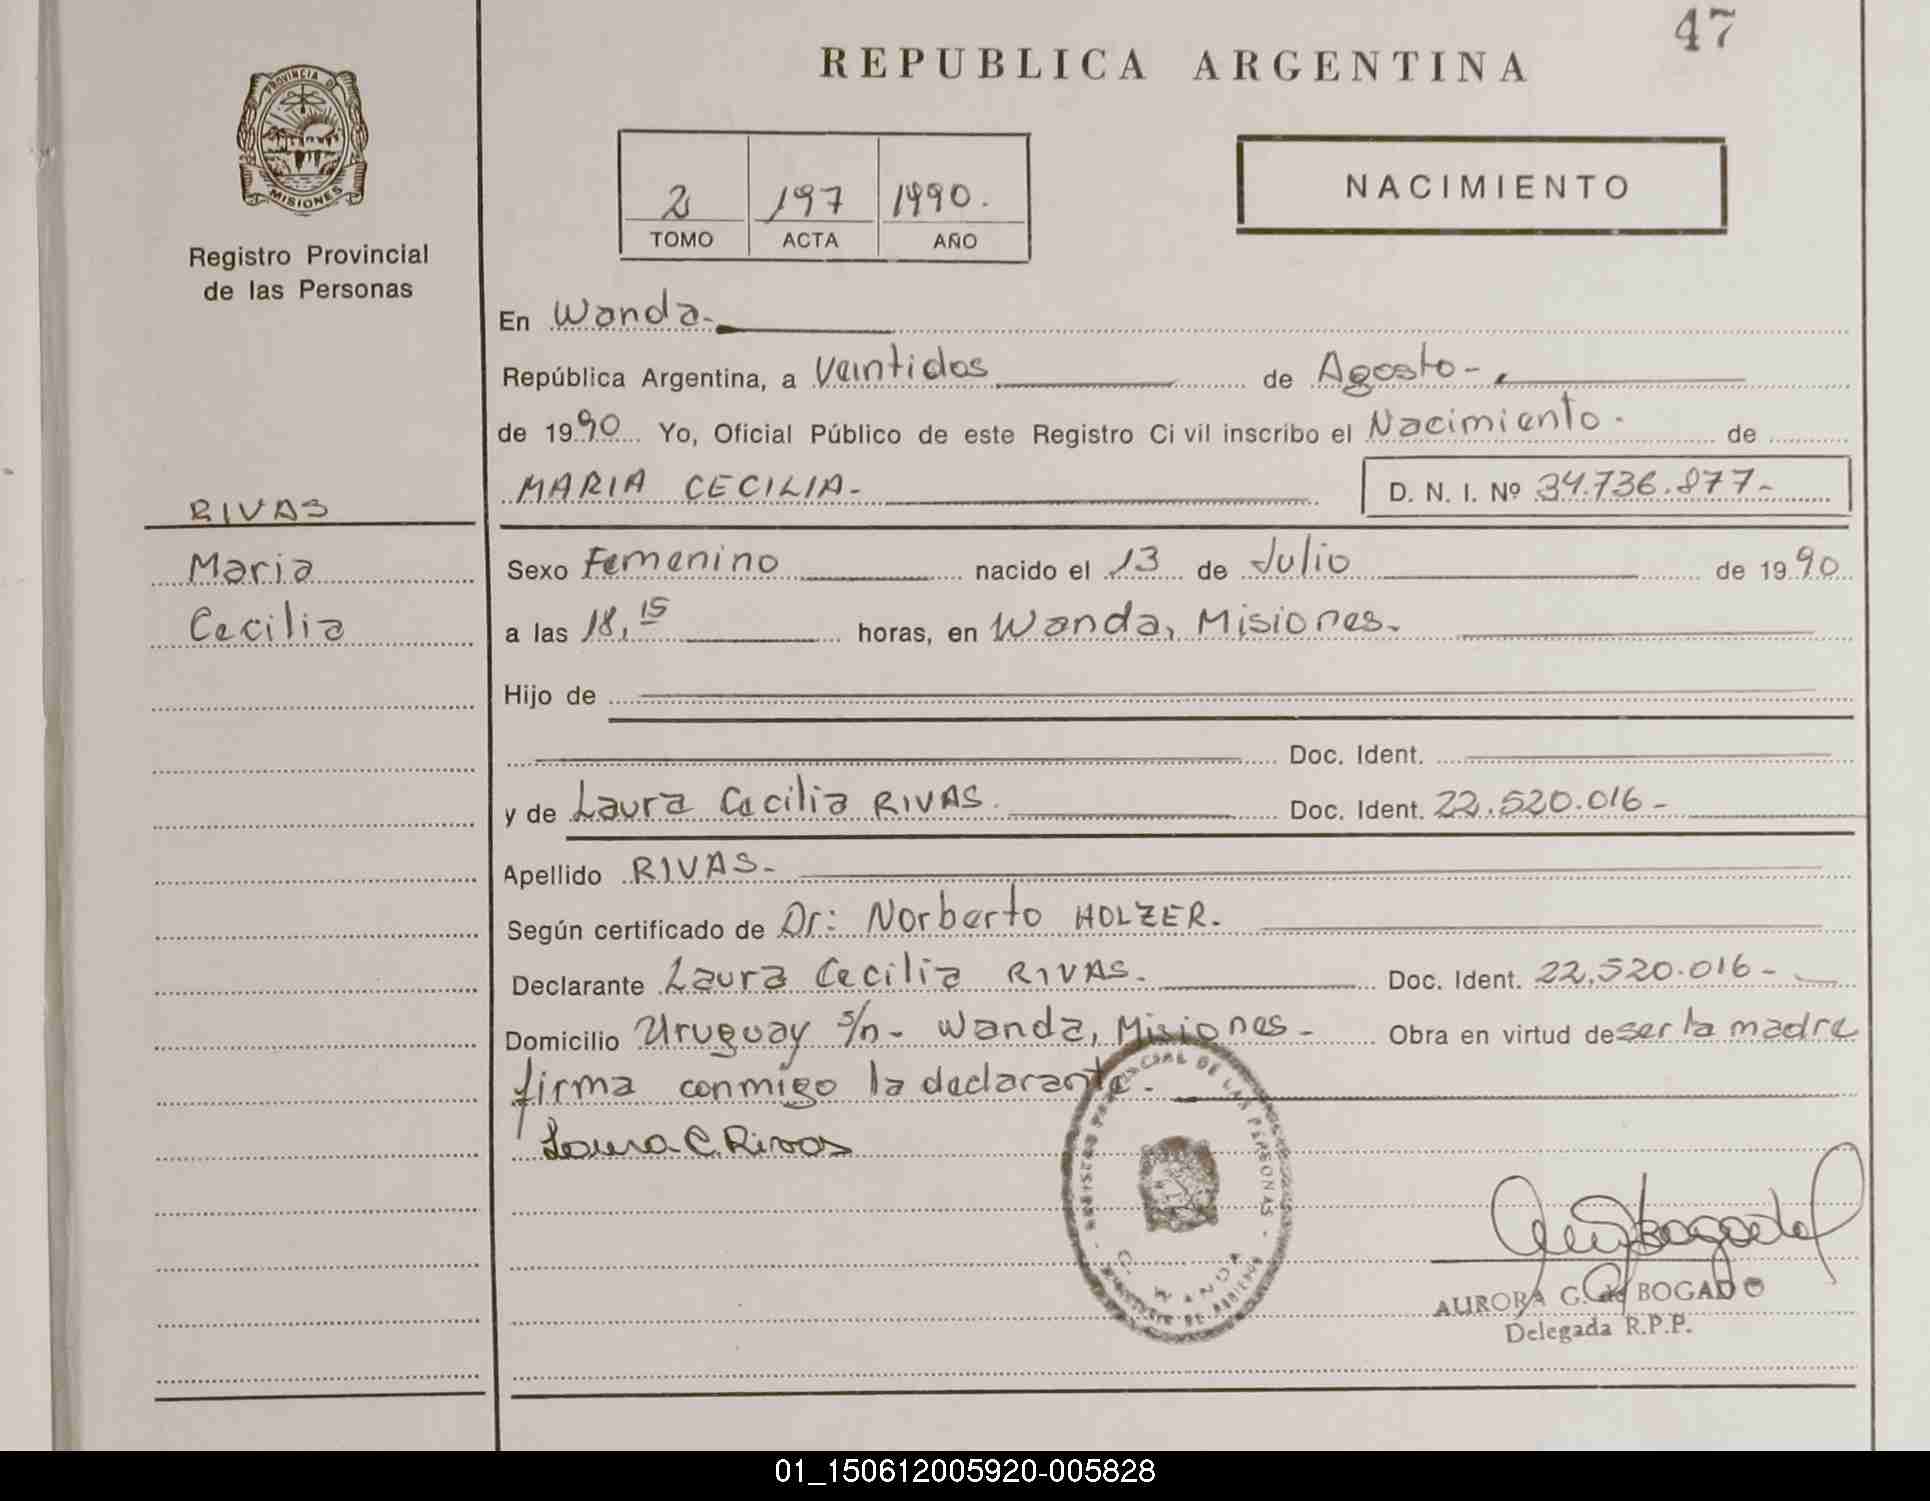 47
REPUBLICA ARGENTINA
PROVINCIA DE
MISIONES
Registro Provincial
de las Personas
2 197 1990.
TOMO ACTA AÑO
NACIMIENTO
En Wanda.
República Argentina, a Veintidos de Agosto-
de 1990 Yo, Oficial Público de este Registro Civil inscribo el Nacimiento. de
MARIA CECILIA- D. N. I. Nº 34.736.877-
RIVAS
Maria
Cecilia
Sexo Femenino nacido el 13 de Julio de 1990
a las 18,15 horas, en Wanda, Misiones.
Hijo de
Doc. Ident.
y de Laura Cecilia RIVAS. Doc. Ident. 22.520.016-
Apellido RIVAS-
Según certificado de Dr: Norberto HOLZER.
Declarante Laura Cecilia RIVAS. Doc. Ident. 22.520.016-
Domicilio Uruguay s/n- Wanda, Misiones- Obra en virtud de ser la madre
firma conmigo la declarante.
Laura C. Rivas
REGISTRO PROVINCIAL DE LAS PERSONAS
WANDA
AURORA G. de BOGADO
Delegada R.P.P.
01_150612005920-005828